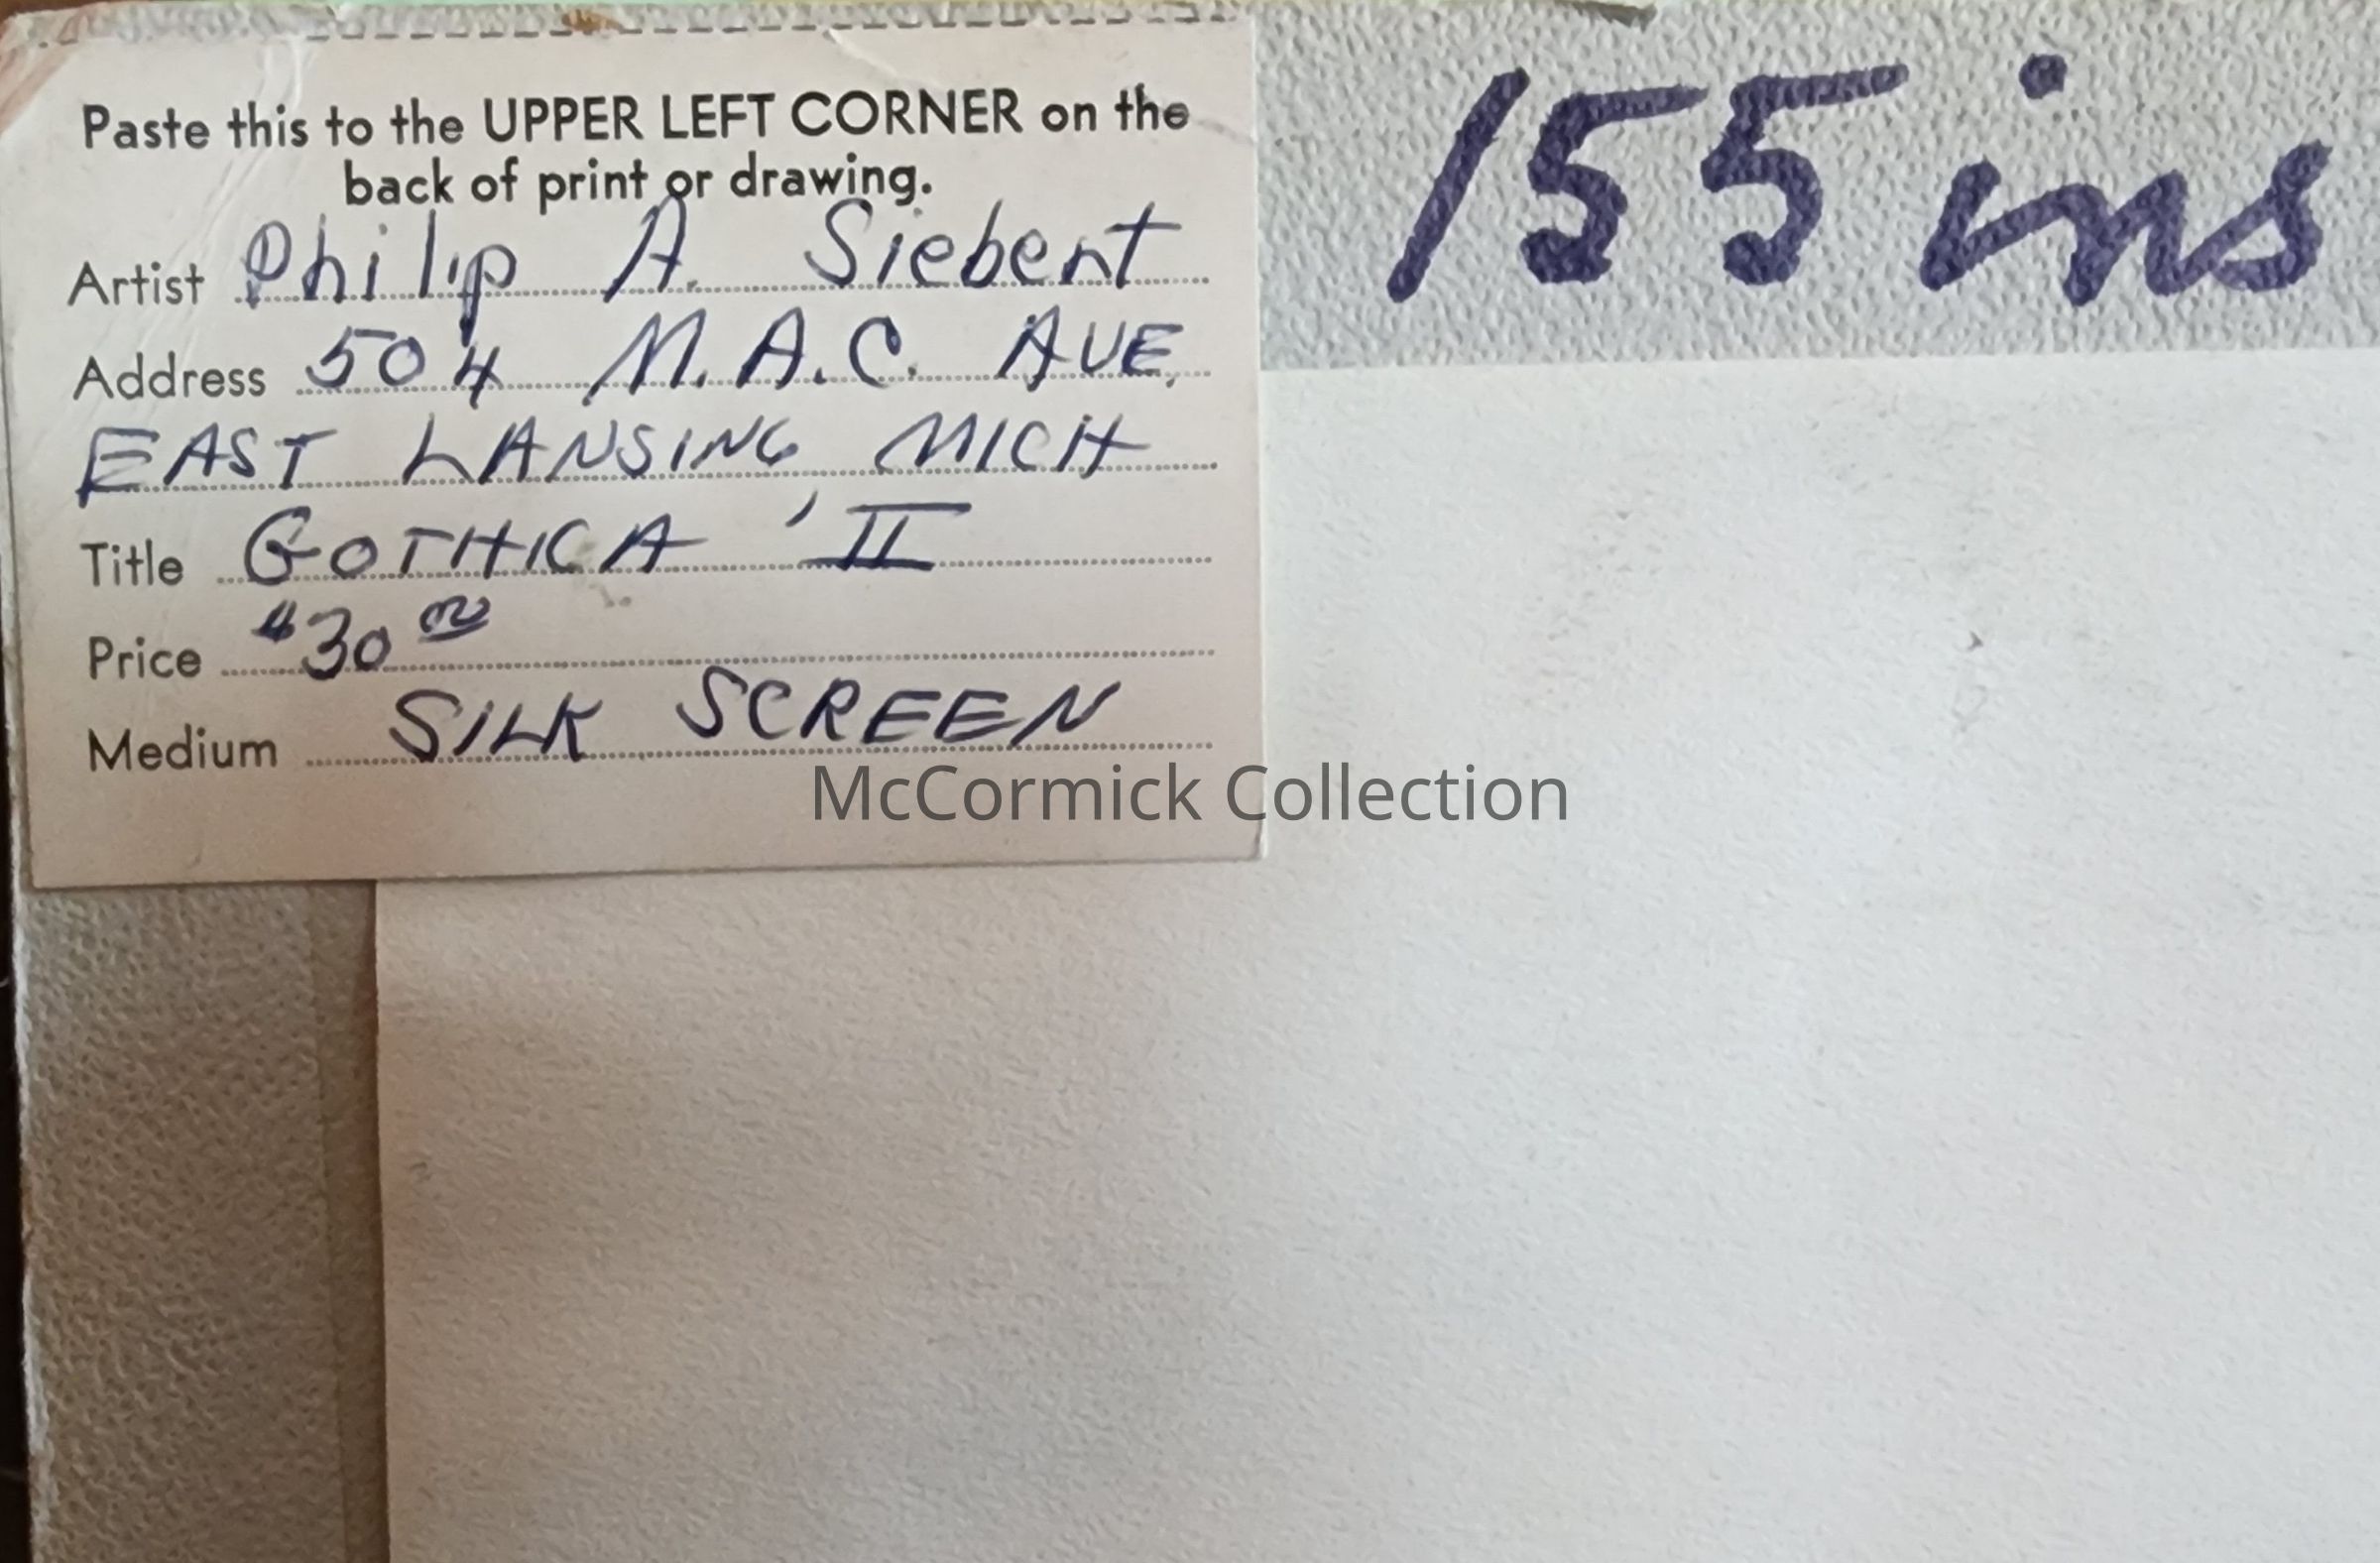 Paste this to the UPPER LEFT CORNER on the
back of print or drawing.
Artist Philip A. Siebert
Address 504 M.A.C. AVE.
EAST LANSING, MICH
Title GOTHICA II
Price $30 00
Medium SILK SCREEN
155 ins
McCormick Collection